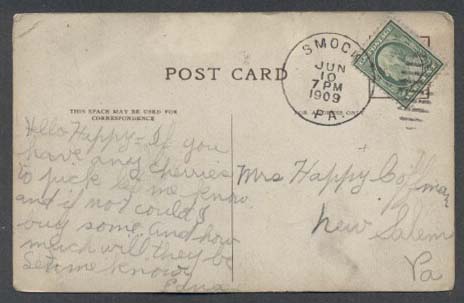 SMOCK
JUN
10
7 PM
1909
PA
POST CARD
THIS SPACE MAY BE USED FOR
CORRESPONDENCE
FOR ADDRESS ONLY
Hello Happy - If you
have any Cherries
to pick let me know
and if not could I
buy some and how
much will they be
Let me know
Edna
Mrs Happy Coffman
New Salem
Pa